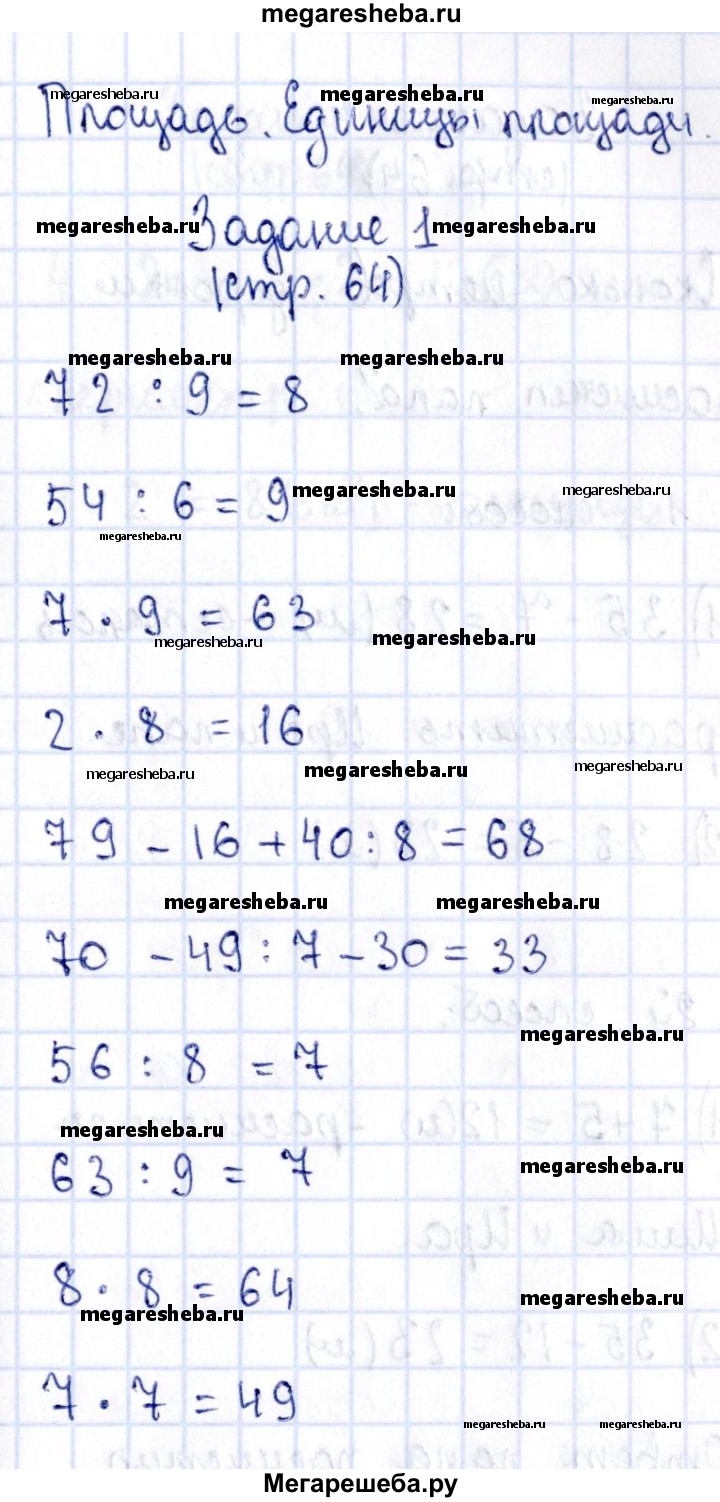 megaresheba.ru
megaresheba.ru megaresheba.ru megaresheba.ru
Площадь. Единицы площади.
megaresheba.ru Задание 1 megaresheba.ru
(стр. 64)
megaresheba.ru megaresheba.ru
72 : 9 = 8
54 : 6 = 9 megaresheba.ru megaresheba.ru
megaresheba.ru
7 · 9 = 63
megaresheba.ru megaresheba.ru
2 · 8 = 16
megaresheba.ru megaresheba.ru megaresheba.ru
79 - 16 + 40 : 8 = 68
megaresheba.ru megaresheba.ru
70 - 49 : 7 - 30 = 33
megaresheba.ru
56 : 8 = 7
megaresheba.ru
63 : 9 = 7 megaresheba.ru
8 · 8 = 64 megaresheba.ru
megaresheba.ru
7 · 7 = 49
megaresheba.ru megaresheba.ru
Мегарешеба.ру